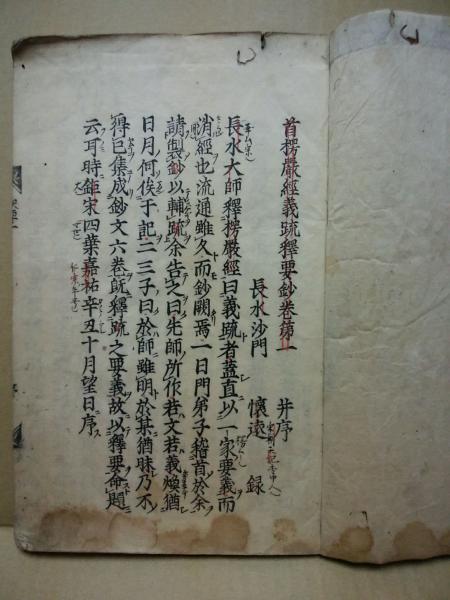 首楞嚴經義疏釋要鈔卷第一
并序
長水沙門 懷遠 録
長水大師釋楞嚴經曰義疏者蓋直以一家要義而
消經也流通雖久而鈔闕焉一日門弟子稽首於余
請製鈔以輔疏余告之曰先師所作若文若義煥猶
日月何俟于記二三子曰於師雖明於某猶昧乃不
得已集成鈔文六卷既釋疏之要義故以釋要命題
云耳時鉅宋四葉嘉祐辛丑十月望日序